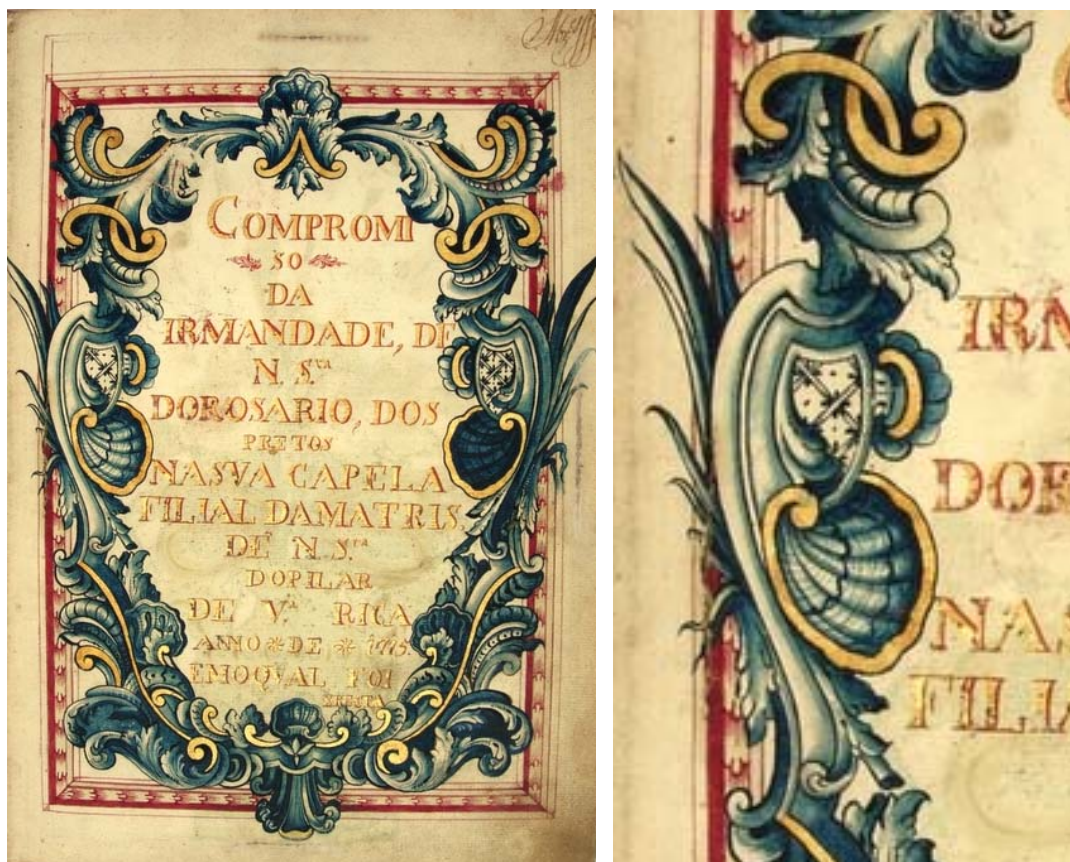 COMPROMI
SO
DA
IRMANDADE, DE
N. S.ra
DOROSARIO, DOS
PRETOS
NASVA CAPELA
FILIAL DAMATRIS
DE N. S.ra
DOPILAR
DE V.a RICA
ANNO DE 1775.
EMOQVAL FOI
IRM
DOR
NAS
FILIA